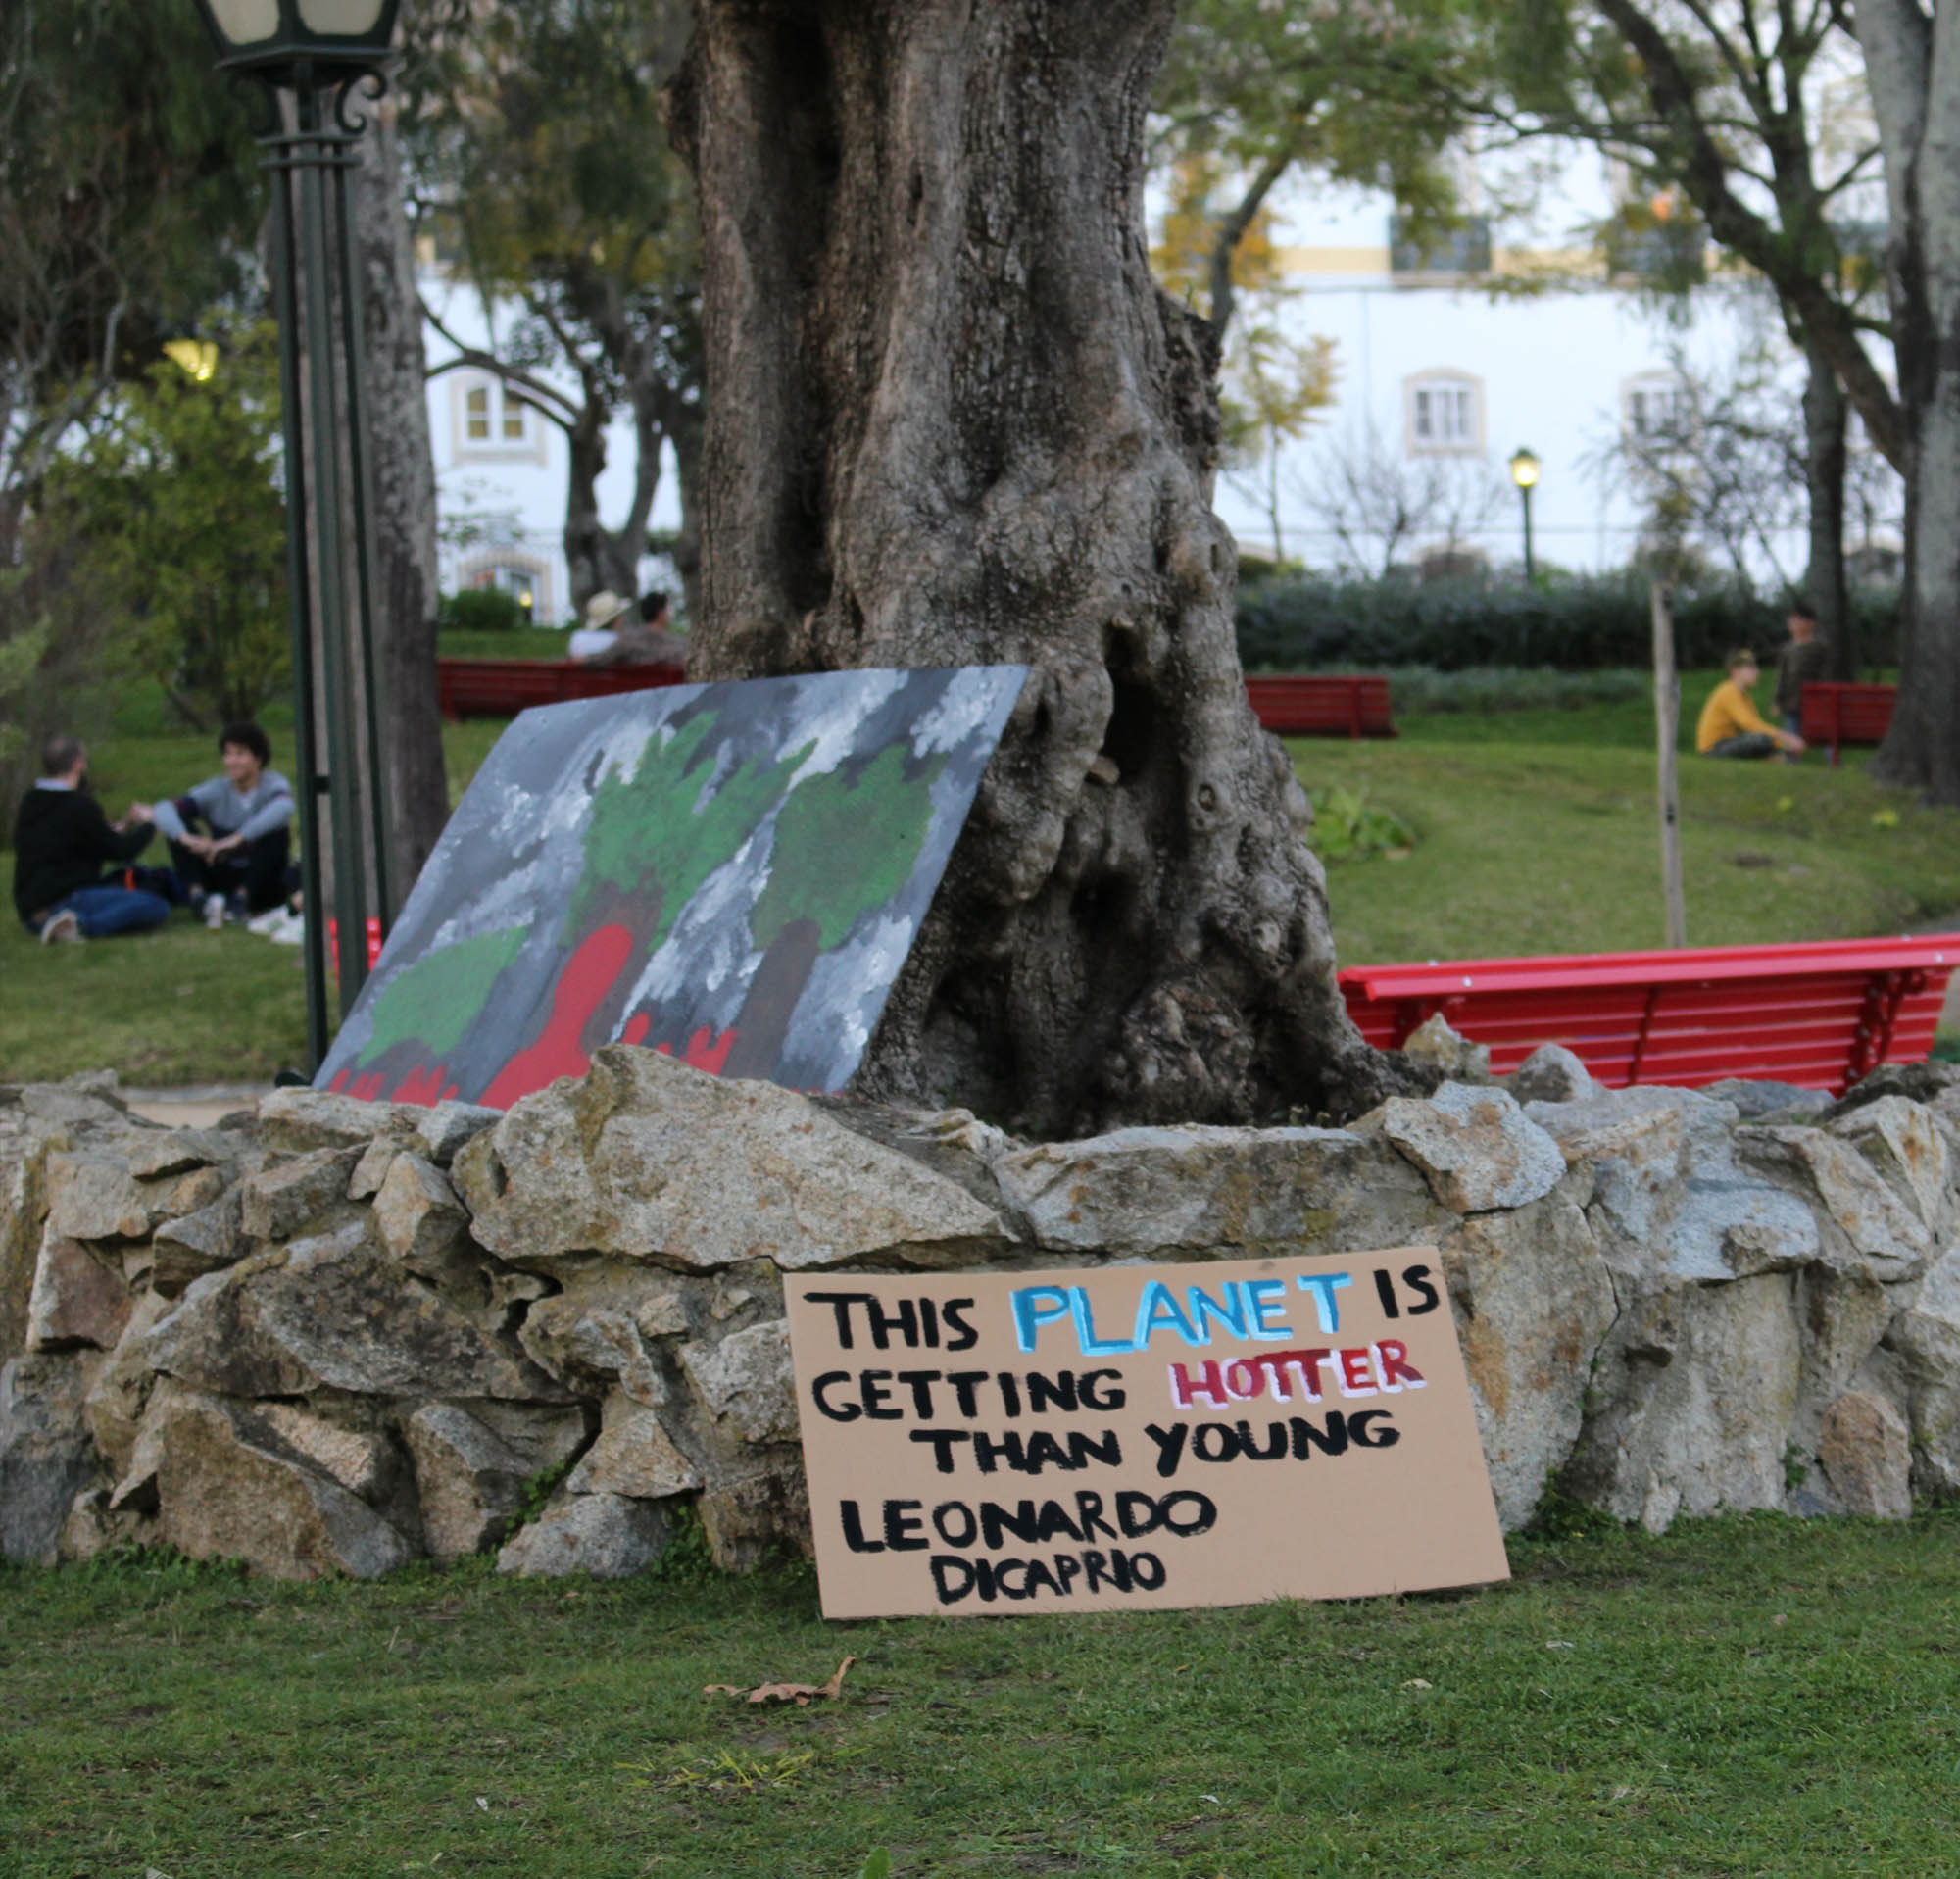 THIS PLANET IS
GETTING HOTTER
THAN YOUNG
LEONARDO
DICAPRIO